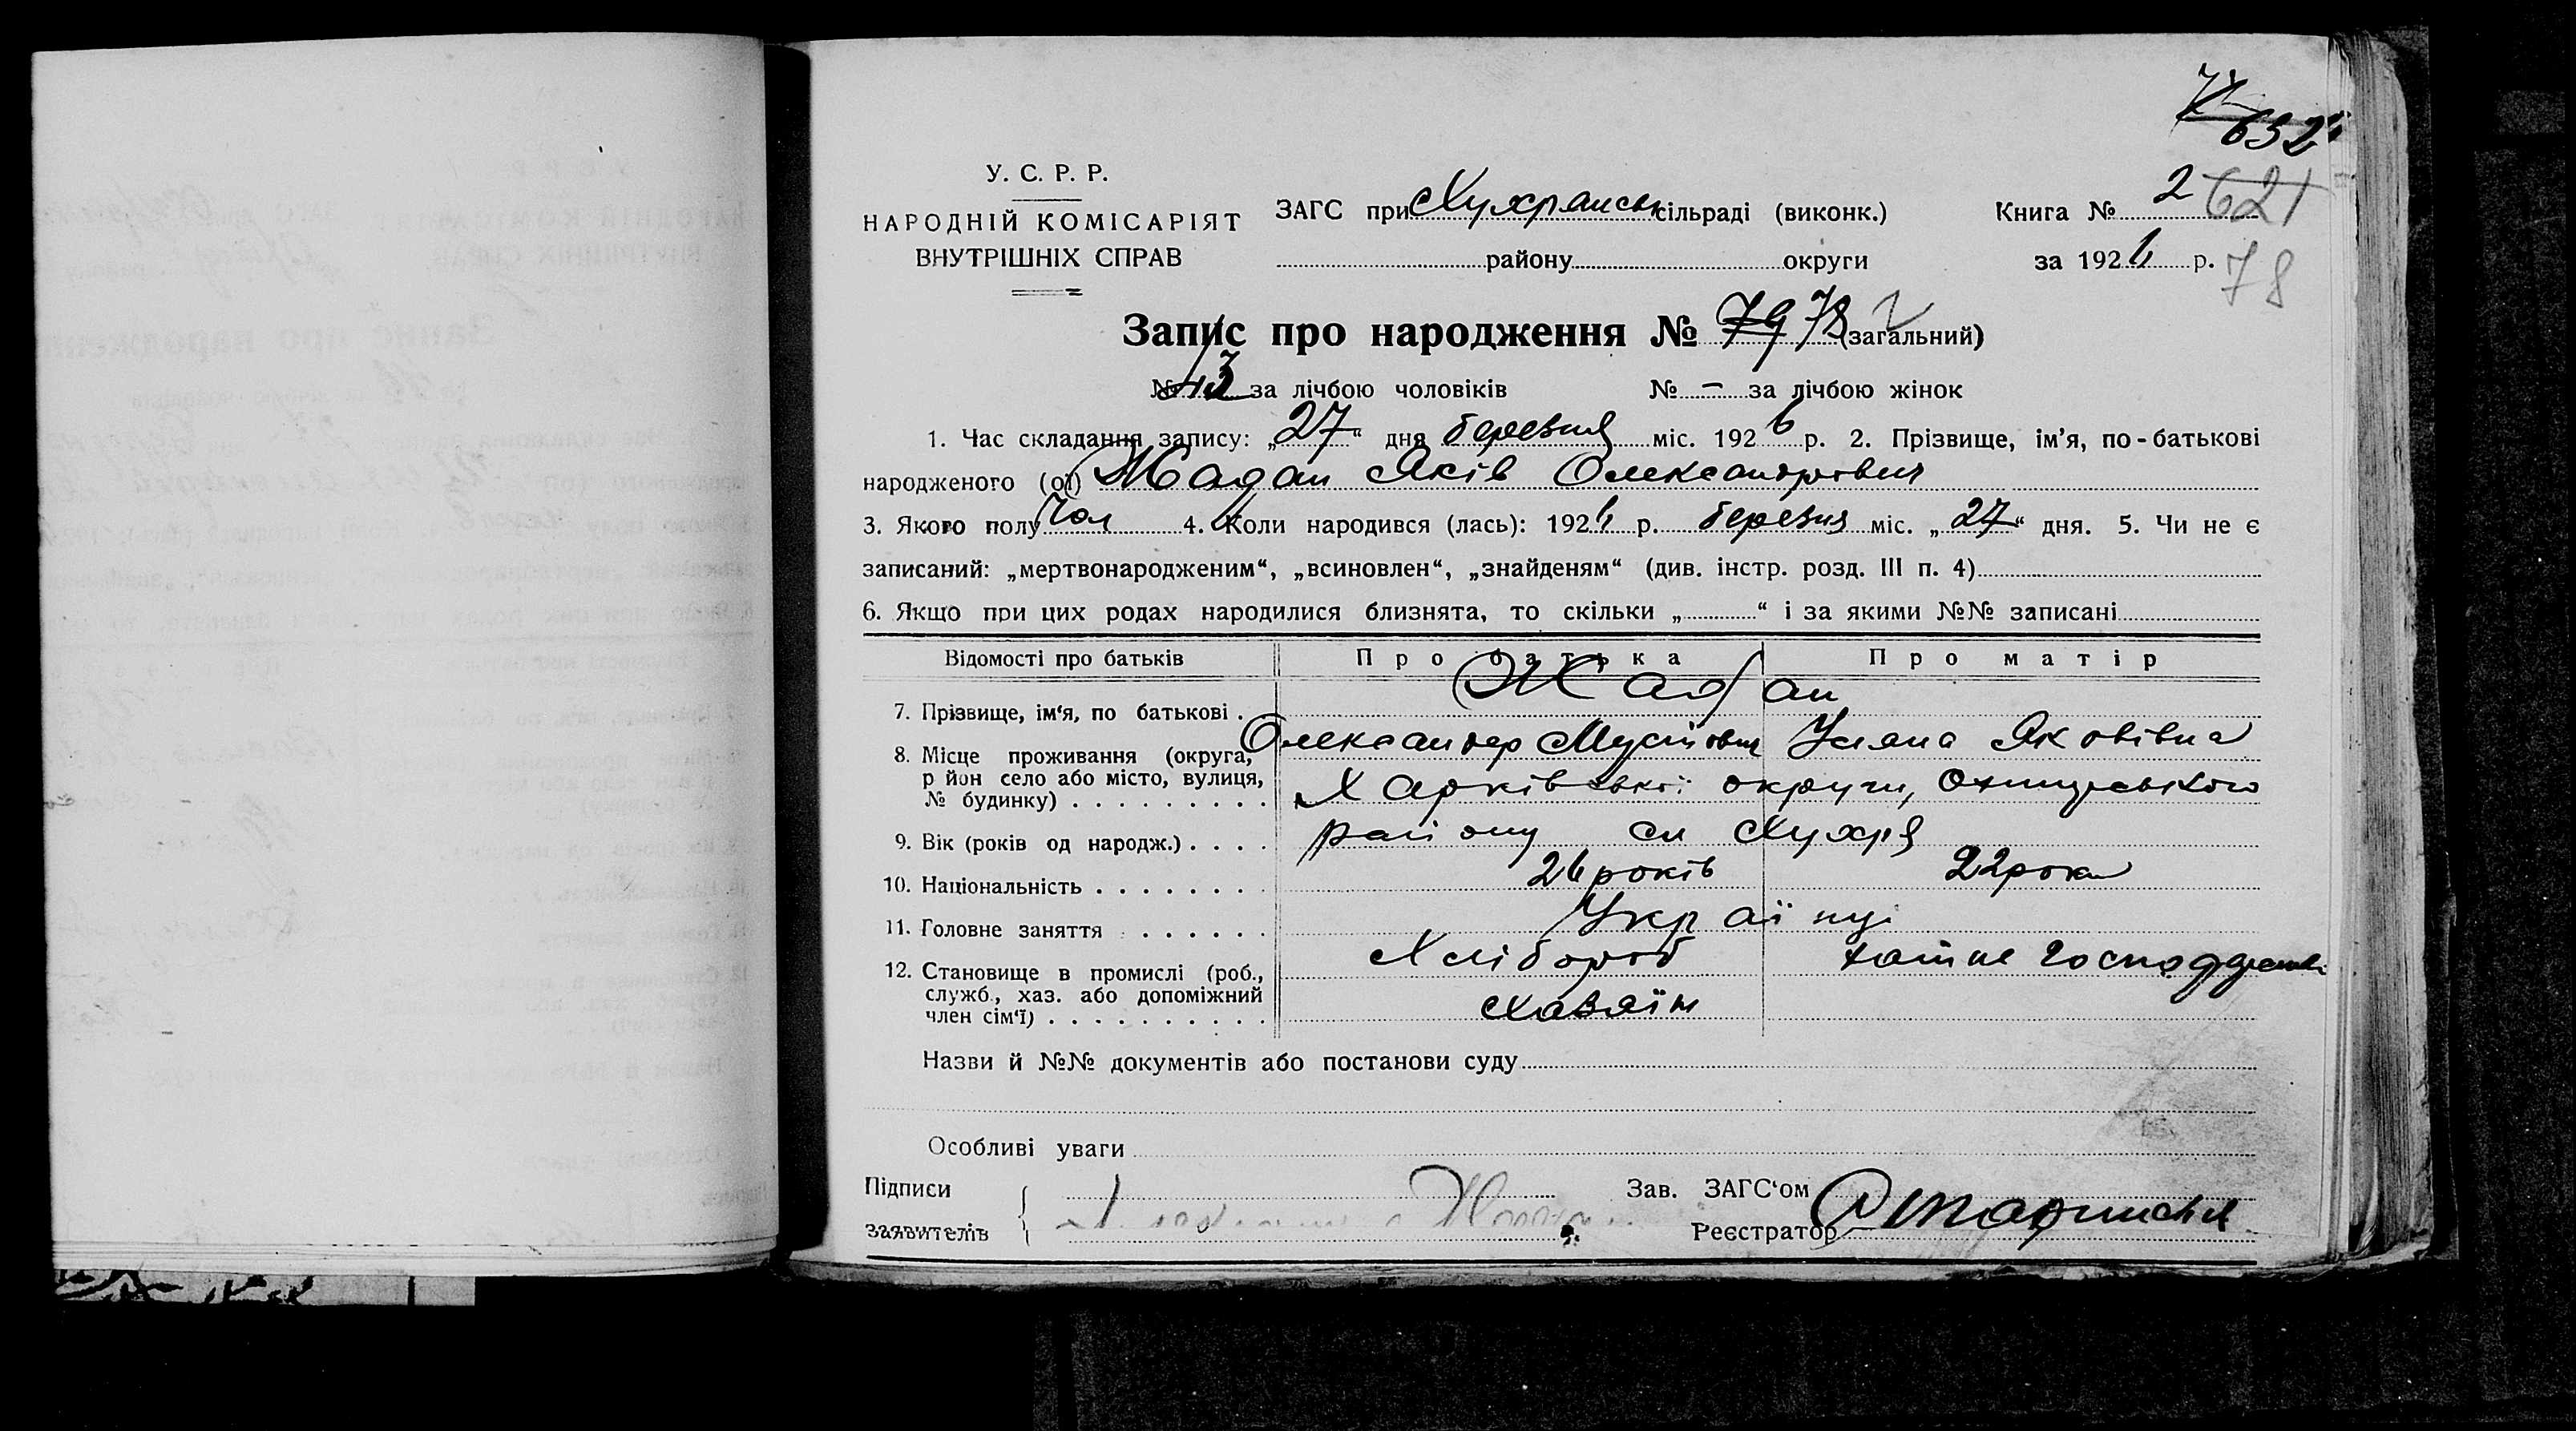 632
У. С. Р. Р.
НАРОДНІЙ КОМІСАРІЯТ
ВНУТРІШНІХ СПРАВ
ЗАГС при Хухранськ сільраді (виконк.)
району округи
Книга № 2 621
за 1926 р. 78
Запис про народження № 79 78 (загальний)
№ 43 за лічбою чоловіків № – за лічбою жінок
1. Час складання запису: „27“ дня березня міс. 1926 р. 2. Прізвище, ім'я, по-батькові
народженого (ої) Жадан Яків Олександрович
3. Якого полу Чол 4. Коли народився (лась): 1926 р. березня міс. „27“ дня. 5. Чи не є
записаний: „мертвонародженим“, „всиновлен“, „знайденям“ (див. інстр. розд. III п. 4)
6. Якщо при цих родах народилися близнята, то скільки „ “ і за якими №№ записані
Відомості про батьків Про батька Про матір
7. Прізвище, ім'я, по батькові . Жадан
Олександер Мусійович Уляна Яковівна
8. Місце проживання (округа,
р йон село або місто, вулиця,
№ будинку) . . . . . . . . . Харківської округи, Охтирського
9. Вік (років од народж.) . . . . району сл Хухря
10. Національність . . . . . . . . 26 років 22 роки
11. Головне заняття . . . . . . Українці
12. Становище в промислі (роб., Хлібороб хатнє
служб., хаз. або допоміжний
член сім'ї) . . . . . . . . . . Хазяїн
Назви й №№ документів або постанови суду
Особливі уваги
Підписи
заявителів
Зав. ЗАГС'ом
Реєстратор